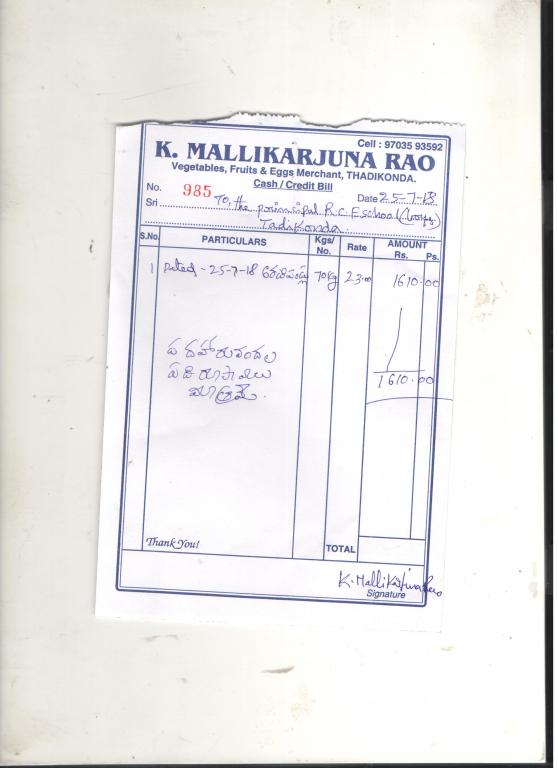 Cell : 97035 93592
K. MALLIKARJUNA RAO
Vegetables, Fruits & Eggs Merchant, THADIKONDA.
Cash / Credit Bill
No. 985 Date 25-7-18
Sri To, the principal R.C.E school
Tadikonda.
S.No. PARTICULARS Kgs/ No. Rate AMOUNT Rs. Ps.
1 Dated - 25-7-18 70kg 23.00 1610.00
పదహారువందల
పది రూపాయలు
మాత్రమే.
1610.00
Thank You!
TOTAL
K. Mallikarjuna Rao
Signature